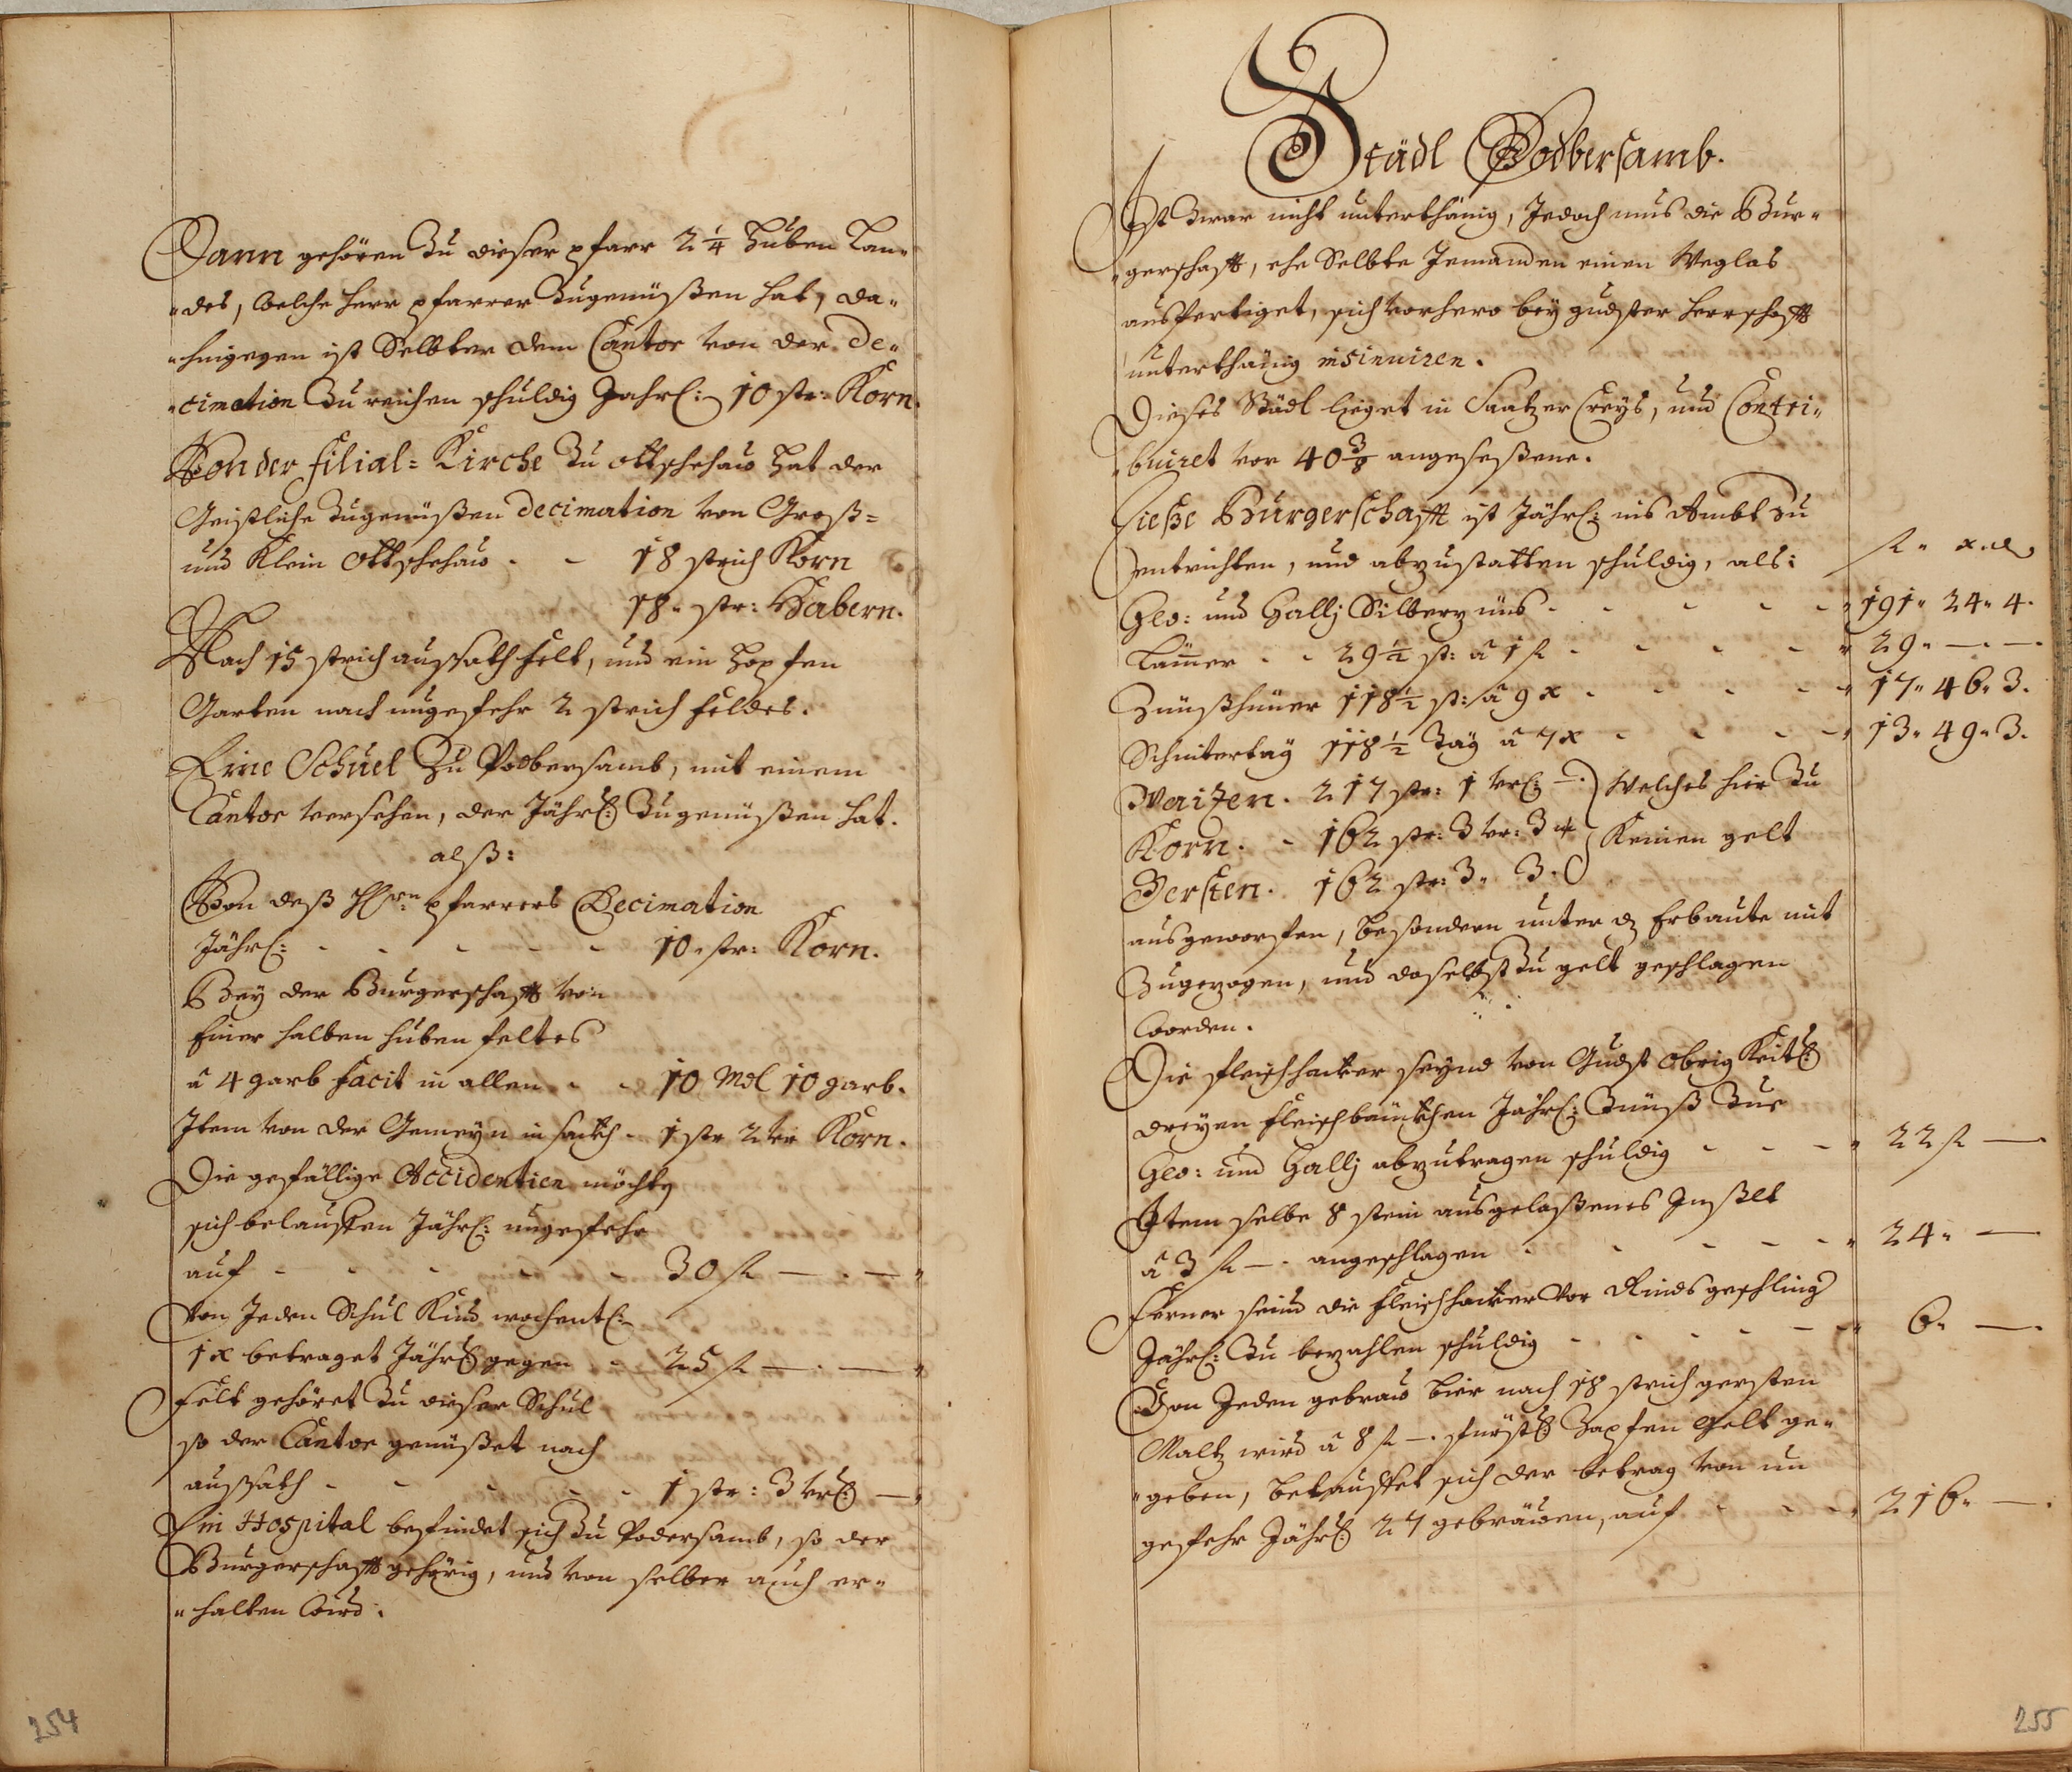 Dann gehören Zu dieser pfarr 2 1/4 Huben Lan„
„des, welche herr pfarrer Zugenüßen hat, da„
„hingegen ist Selbter dem Cantor von der De„
„cimation Zu reichen schuldig Jahrl: 10 str: Korn.
Von der filial=Kirche Zu ottschehau hat der
Geistliche Zugenüßen Decimation von Groß=
und Klein Ottschehau - - 18 strich Korn
18„ str: Habern.
Nach 15 strich aussath felt, und ein Hopfen
Garten nach ungefehr 2 strich feldes.
Eine Schuel Zu Podbersamb, mit einem
Cantor versehen, der Jährl: Zugenüßen hat.
alß:
Von deß H: pfarrers Decimation
Jährl: - - - - - 10„ str: Korn.
Bey der Burgerschafft von
Einer halben huben feltes
â 4 garb facit in allen - - 10 Mdl 10 garb.
Item von der Gemeyn in - 1 str 2 vr Korn.
Die gefällige Accidentien möchten
sich belauffen Jährl: ungefehr
auf - - - - - 30 fl — . — „
Von Jeden Schul Kind wochentl:
1 x betraget Jährl: gegen - 25 fl — . — „
Felt gehöret Zu dieser Schul
so der Cantor genüßet nach
aussath - - - - - 1 str: 3 vrl: —„
Ein Hospital befindet sich Zu Podersamb, so der
Burgerschafft gehörig, und von selber auch er„
„halten wird.
254
Städl Podbersamb.
Ist Zwar nicht unterthänig, Jedoch mus die Bur„
„gerschafft, ehe Selbte Jemanden einen Weglas
ausfertiget, sich vorhero bey gndster herrschafft
unterthänig insinuiren.
Dieses Städl lieget in Saatzer Creys, und Contri„
„buiret vor 40 3/8 angeseßene.
Dieße Bürgerschafft ist Jährl: ins Ambt Zu
entrichten, und abzustatten schuldig, als:
fl „ x. d
Geo: und Gallj Silberzünß - - - - - „ 191„ 24„ 4.
Lämer - - 29 1/2 st: â 1 fl - - - - „ 29„ —. —.
Zünßhüner 118 1/2 st: â 9 x - - - - „ 17„ 46„ 3.
Schnitertäg 118 1/2 Täg â 7 x - - - - „ 13„ 49„ 3.
Waitzen. 217 str: 1 vrl: —. Welches hier Zu
Korn. - 162 str: 3 vr: 3 Keinen gelt
Gersten. 162 str: 3„ 3.
ausgeworffen, besondern unter Erbaute mit
Zugezogen, und daselbst Zu gelt geschlagen
worden.
Die fleischhacker seynd von Gndst obrigkeitl:
dreyen fleischbäncken Jährl: Zünß Zue
Geo: und Gallj abzutragen schuldig - - - „ 22 fl —.
Item selbe 8 stein ausgelaßenes Inßlt
â 3 fl —. angeschlagen - - - - - „ 24„ —.
Ferner seind die fleischhacker vor Rindsgeschling
Jährl: Zu bezahlen schuldig - - - - - „ 6„ —.
Von Jeden gebräu bier nach 18 strich gersten
Maltz wird â 8 fl —. fürstl: Zapfen gelt ge„
„geben, belauffet sich der betrag von un
gefehr Jährl: 27 gebräuen, auf - - - „ 216„ —.
255